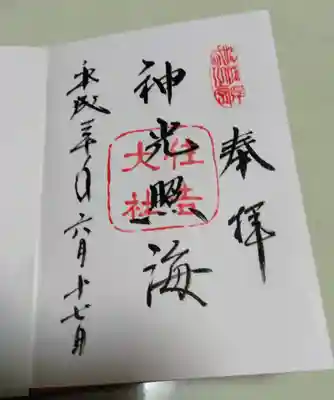 奉拝
神光照海
住吉
大社
平成三十年六月十七日